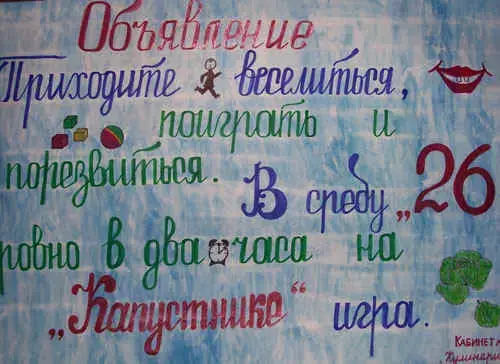 Объявление
Приходите веселиться,
поиграть и
порезвиться.
В среду „26
ровно в два часа на
„Капустнике“ игра.
Кабинет
„Кулинари